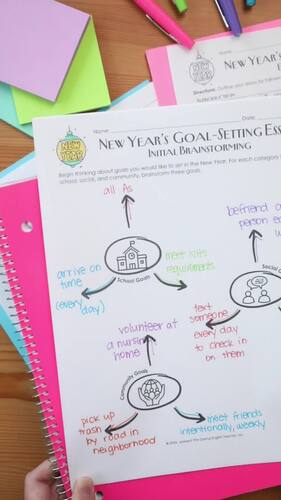 NEW YEAR
NEW YEAR'S
Outline your essay
Name
Date:
NEW YEAR
NEW YEAR'S GOAL-SETTING ESS
INITIAL BRAINSTORMING
Begin thinking about goals you would like to set in the New Year. For each category
school, social, and community, brainstorm three goals.
all As
befriend a
person
arrive on
time
(every
day)
School Goals
meet
requirements
Social G
text
someone
every day
to check in
on them
volunteer at
a nursing
home
Community Goals
pick up
trash
by road in
neighborhood
meet friends
intentionally, weekly